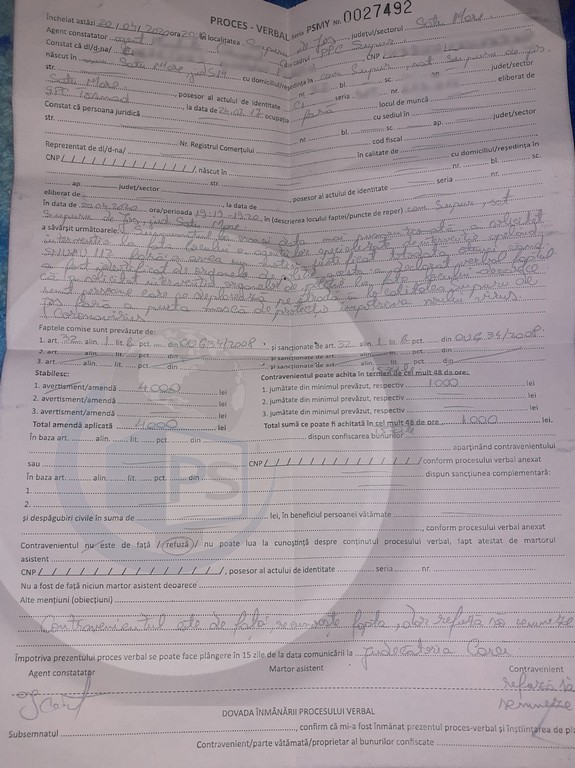 PROCES - VERBAL seria PSMY Nr. 0027492
Încheiat astăzi 20/04/2020 ora localitatea Supuru de Jos, județul/sectorul Satu Mare
Agent constatator agent din cadrul PPC Supur
Constat că dl/d-na/ CNP
născut în Satu Mare jud. SM, cu domiciliul/reședința în com Supur, sat Supuru de Jos
str. nr. bl. sc. ap. județ/sector
Satu Mare, posesor al actului de identitate seria nr. eliberat de
SPC Tășnad, la data de ocupația fără locul de muncă
Constat că persoana juridică cu sediul în
str. nr. bl. sc. ap. județ/sector
Nr. Registrul Comerțului cod fiscal
Reprezentat de dl/d-na/ în calitate de
CNP///////////// născut în cu domiciliul/reședința în
str. nr. bl. sc.
ap. județ/sector, posesor al actului de identitate seria nr.
eliberat de, la data de
În data de 20.04.2020 ora/perioada 19:12-19:20 în (descrierea locului faptei/puncte de reper) com Supur, sat
Supuru de Jos, jud. Satu Mare
a săvârșit următoarele: mai a solicitat
intervenția la fața locului a agenților specializate de intervenție apelând
SNUAU 112 fără a avea un motiv justificat
a fost identificat de organele de poliție verbal faptul
că a solicitat intervenția organelor de poliție deoarece
sunt persoane care se deplasează pe stradă în localitatea Supuru de
Jos fără a purta mască de protecție împotriva noului virus
Coronavirus
Faptele comise sunt prevăzute de:
1. art. 32 alin. 1 lit. b pct. din OUG 34/2008, și sancționate de art. 32 alin. 1 lit. b pct. din OUG 34/2008
2. art. alin. lit. pct. din și sancționate de art. alin. lit. pct. din
3. art. alin. lit. pct. din și sancționate de art. alin. lit. pct. din
Stabilesc: Contravenientul poate achita în termen de cel mult 48 de ore:
1. avertisment/amendă 4000 lei 1. jumătate din minimul prevăzut, respectiv 1000 lei
2. avertisment/amendă lei 2. jumătate din minimul prevăzut, respectiv lei
3. avertisment/amendă lei 3. jumătate din minimul prevăzut, respectiv lei
Total amendă aplicată 4000 lei Total sumă ce poate fi achitată în cel mult 48 de ore 1000 lei.
În baza art. alin. lit. pct. din dispun confiscarea bunurilor
aparținând contravenientului
sau CNP///////////// conform procesului verbal anexat
În baza art. alin. lit. pct. din dispun sancțiunea complementară:
1.
2.
și despăgubiri civile în suma de lei, în beneficiul persoanei vătămate
, conform procesului verbal anexat
Contravenientul nu este de față / refuză / nu poate lua la cunoștință despre conținutul procesului verbal, fapt atestat de martorul
asistent
CNP/////////////, posesor al actului de identitate seria nr.
Nu a fost de față niciun martor asistent deoarece
Alte mențiuni (obiecțiuni)
Contravenientul este de față, recunoaște fapta, dar refuză să semneze
Împotriva prezentului proces verbal se poate face plângere în 15 zile de la data comunicării la Judecătoria Carei
Agent constatator Martor asistent Contravenient
refuză să
semneze
DOVADA ÎNMÂNĂRII PROCESULUI VERBAL
Subsemnatul, confirm că mi-a fost înmânat prezentul proces-verbal și înștiințarea de pl
Contravenient/parte vătămată/proprietar al bunurilor confiscate
PS